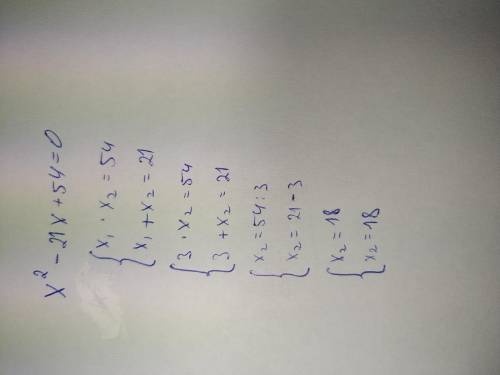 x² - 21x + 54 = 0
x₁ · x₂ = 54
x₁ + x₂ = 21
3 · x₂ = 54
3 + x₂ = 21
x₂ = 54 : 3
x₂ = 21 - 3
x₂ = 18
x₂ = 18